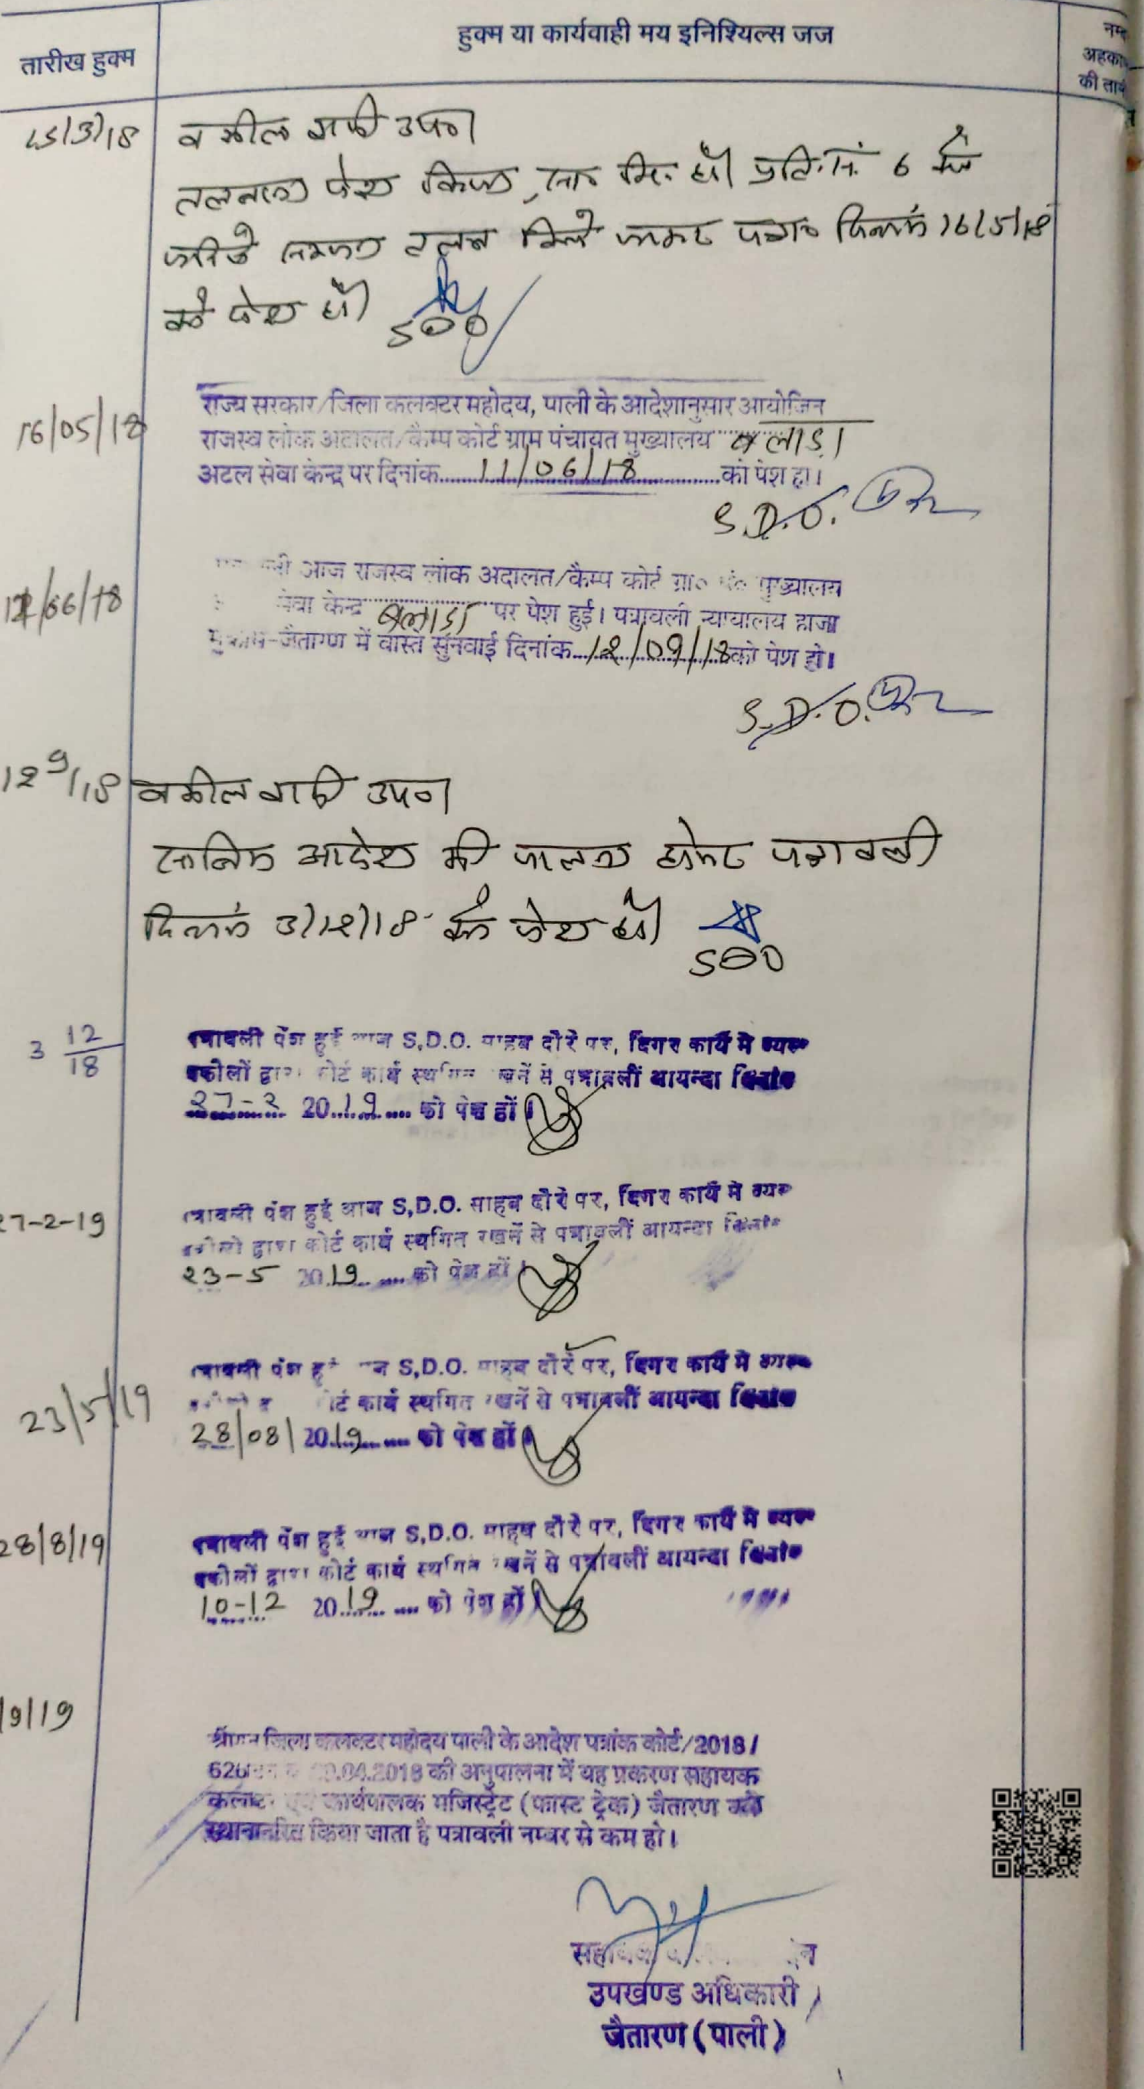 तारीख हुक्म
हुक्म या कार्यवाही मय इनिशियल्स जज
की
15/3/18
वकील वादी उप०।
तलबाना पेश किया, प्रति.सं. 6 को
तलब दिनांक 16/5/18
को पेश हो।
SDO
16/05/18
राज्य सरकार/जिला कलक्टर महोदय, पाली के आदेशानुसार आयोजित
राजस्व लोक अदालत/कैम्प कोर्ट ग्राम पंचायत मुख्यालय बलाडा
अटल सेवा केन्द्र पर दिनांक 11/06/18 को पेश हो।
S.D.O.
/06/18
आज राजस्व लोक अदालत/कैम्प कोर्ट ग्रा० पं० मुख्यालय
सेवा केन्द्र बलाडा पर पेश हुई। पत्रावली न्यायालय हाजा
मुकाम-जैतारण में वास्ते सुनवाई दिनांक 12/09/18 को पेश हो।
S.D.O.
12 9/18
वकील वादी उप०।
आदेश की पालना होकर पत्रावली
दिनांक 3/12/18 को पेश हो।
SDO
3 12/18
पत्रावली पेश हुई आज S.D.O. साहब दौरे पर, दिगर कार्य मे व्यस्त
वकीलों द्वारा कोर्ट कार्य स्थगित रखनें से पत्रावलीं आयन्दा दिनांक
27-2 2019 को पेश हों।
27-2-19
पत्रावली पेश हुई आज S.D.O. साहब दौरे पर, दिगर कार्य मे व्यस्त
वकीलों द्वारा कोर्ट कार्य स्थगित रखनें से पत्रावलीं आयन्दा दिनांक
23-5 2019 को पेश हों।
23/5/19
पत्रावली पेश हुई आज S.D.O. साहब दौरे पर, दिगर कार्य मे व्यस्त
कोर्ट कार्य स्थगित रखनें से पत्रावलीं आयन्दा दिनांक
28/08/2019 को पेश हों।
28/8/19
पत्रावली पेश हुई आज S.D.O. साहब दौरे पर, दिगर कार्य मे व्यस्त
वकीलों द्वारा कोर्ट कार्य स्थगित रखनें से पत्रावलीं आयन्दा दिनांक
10-12 2019 को पेश हों।
/9/19
श्रीमान जिला कलक्टर महोदय पाली के आदेश पत्रांक कोर्ट/2018/
.04.2018 की अनुपालना में यह प्रकरण सहायक
कलक्टर एवं कार्यपालक मजिस्ट्रेट (फास्ट ट्रेक) जैतारण को
स्थानान्तरित किया जाता है पत्रावली नम्बर से कम हो।
उपखण्ड अधिकारी
जैतारण (पाली)